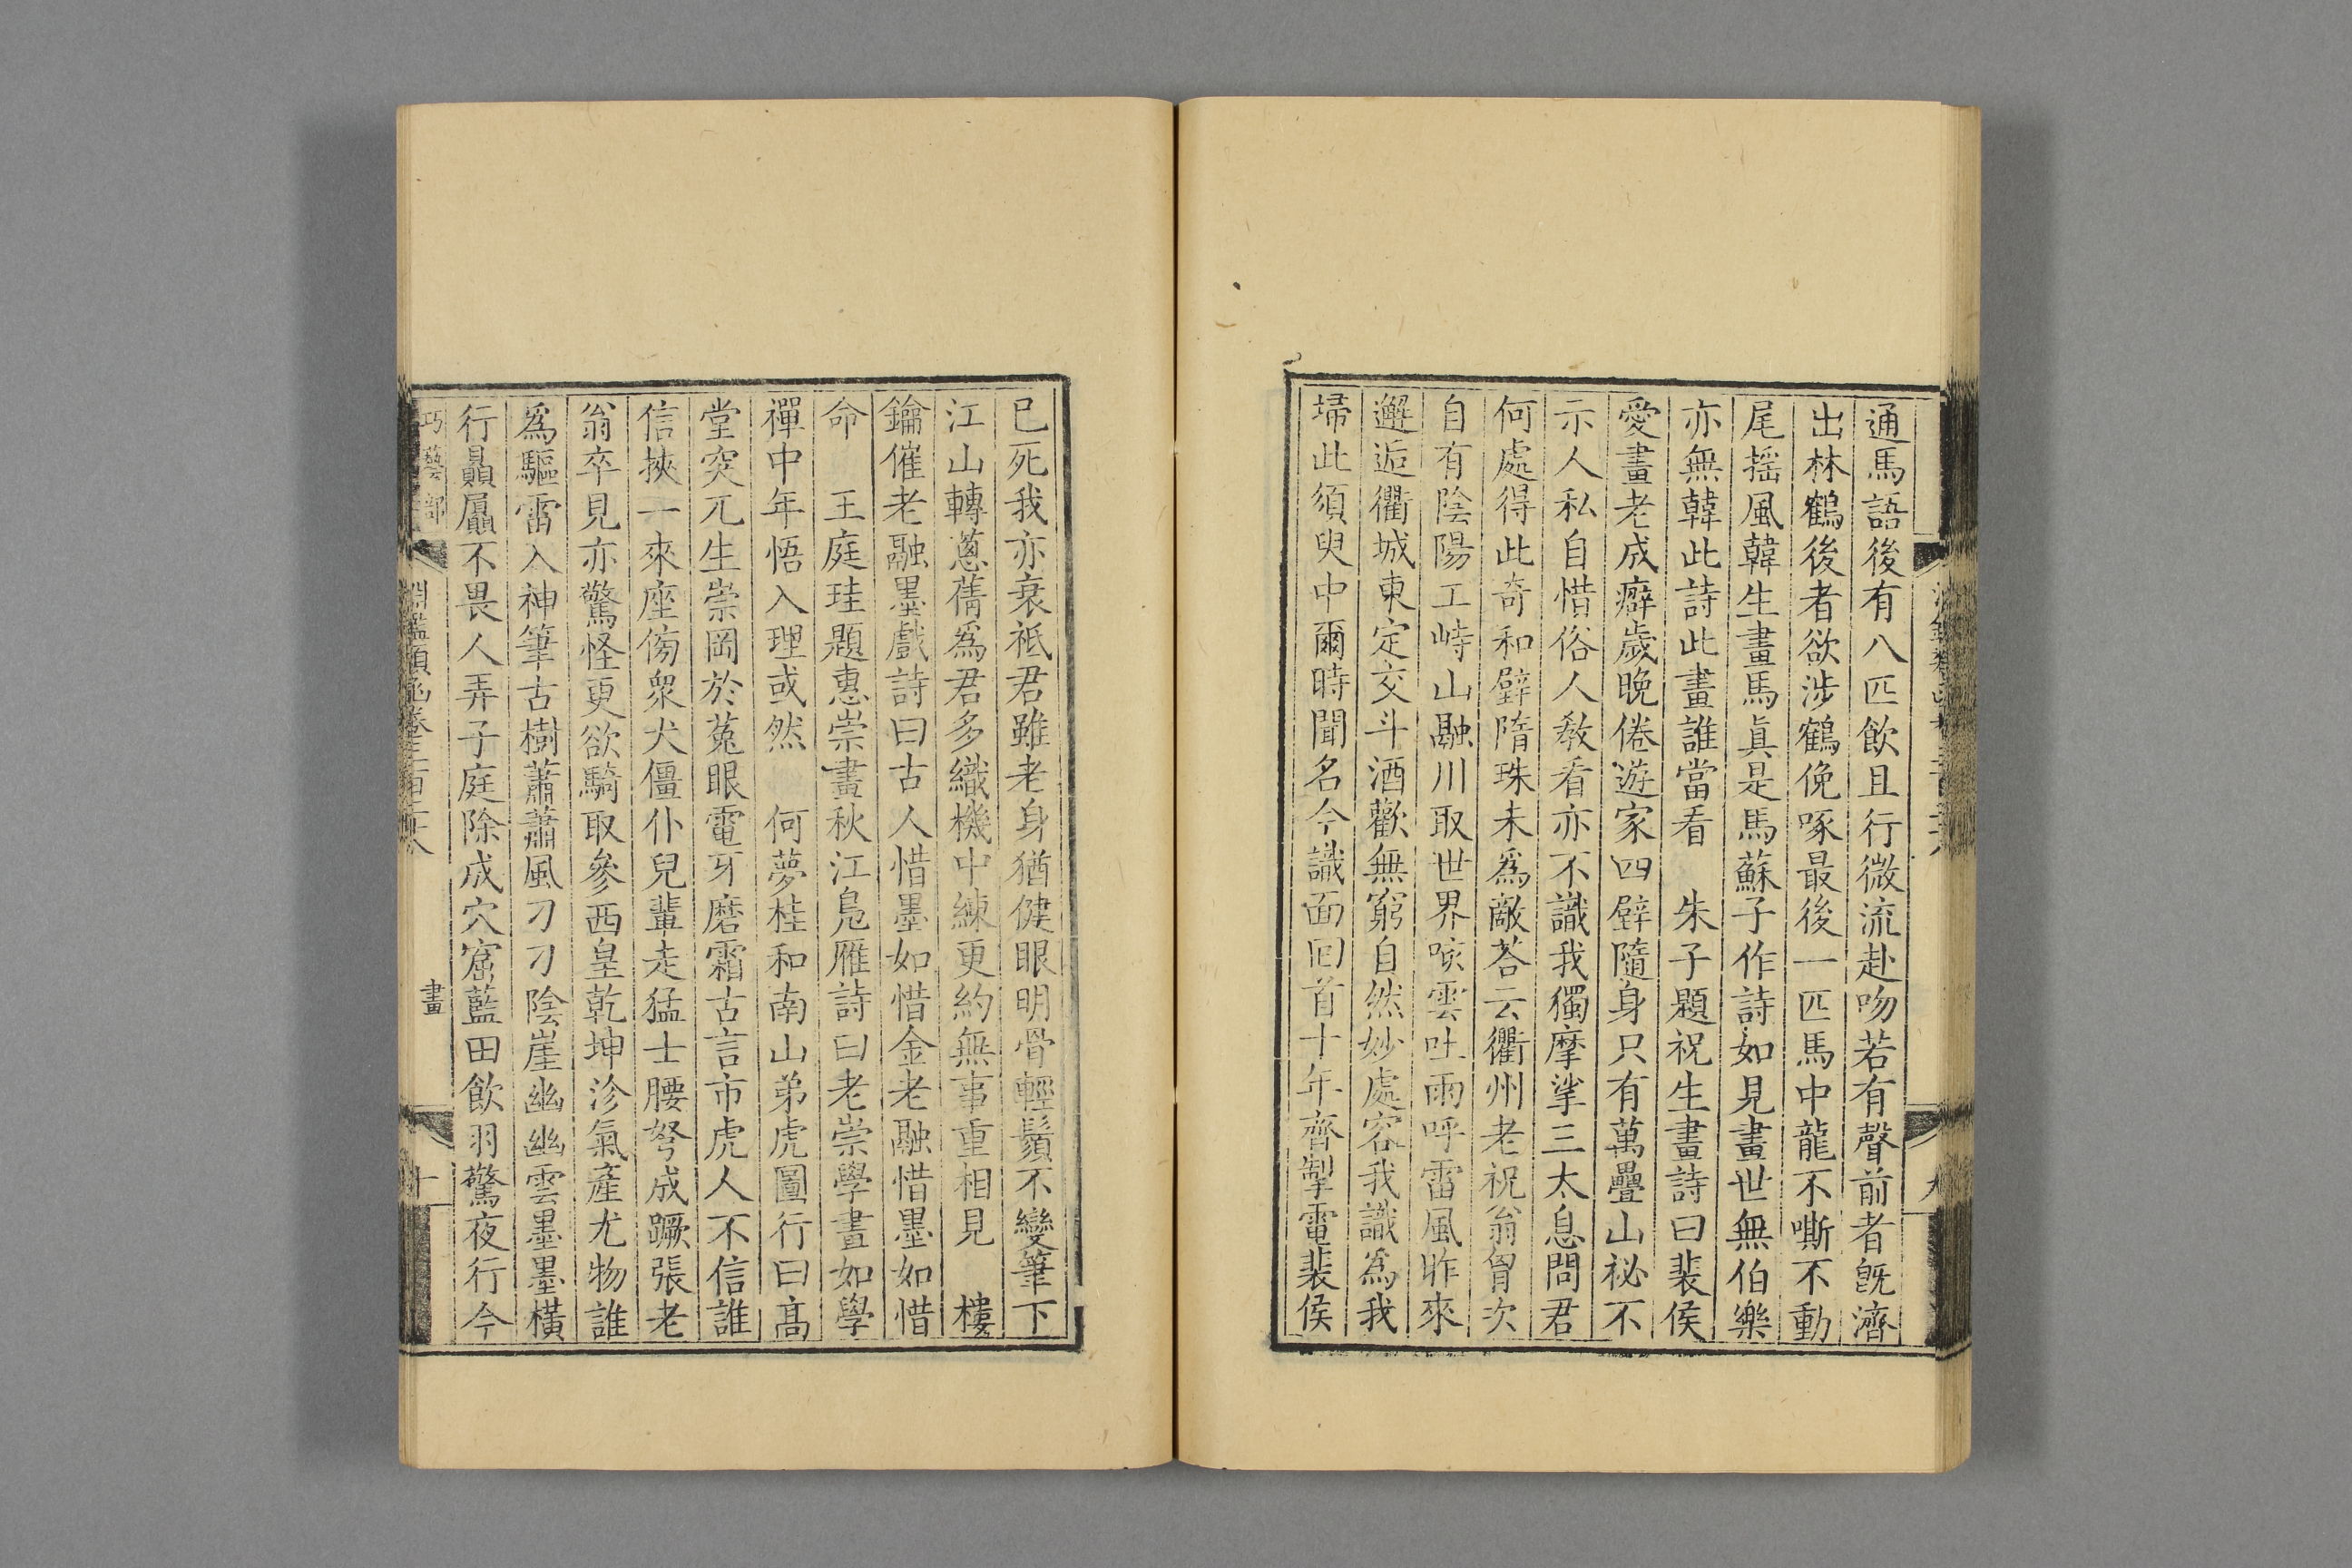 通馬語後有八匹飲且行微流赴吻若有聲前者旣濟
出林鶴後者欲涉鶴俛啄最後一匹馬中龍不嘶不動
尾摇風韓生畫馬眞是馬蘇子作詩如見畫世無伯樂
亦無韓此詩此畫誰當看　朱子題祝生畫詩曰裴侯
愛畫老成癖歲晚倦遊家四壁隨身只有萬疊山祕不
示人私自惜俗人敎看亦不識我獨摩挲三太息問君
何處得此奇和璧隋珠未爲敵荅云衢州老祝翁胷次
自有陰陽工峙山融川取世界咳雲吐雨呼雷風昨來
邂逅衢城東定交斗酒歡無窮自然妙處容我識爲我
埽此須臾中爾時聞名今識面回首十年齊掣電裴侯
已死我亦衰祗君雖老身猶健眼明骨輕鬚不變筆下
江山轉蔥蒨爲君多織機中練更約無事重相見　樓
鑰催老融墨戲詩曰古人惜墨如惜金老融惜墨如惜
命　王庭珪題惠崇畫秋江鳧雁詩曰老崇學畫如學
禪中年悟入理或然　何夢桂和南山弟虎圖行曰髙
堂突兀生崇岡於菟眼電牙磨霜古言市虎人不信誰
信挾一來座傍衆犬僵仆兒輩走猛士腰弩成蹶張老
翁卒見亦驚怪更欲騎取參西皇乾坤沴氣產尤物誰
爲驅雷入神筆古樹蕭蕭風刁刁陰崖幽幽雲墨墨橫
行贔屭不畏人弄子庭除成穴窟藍田飲羽驚夜行今
巧藝部　淵鑑類函卷三百二十八　畫　十